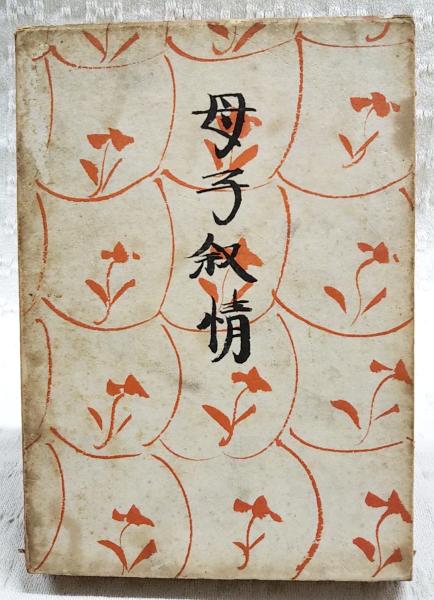 母子叙情